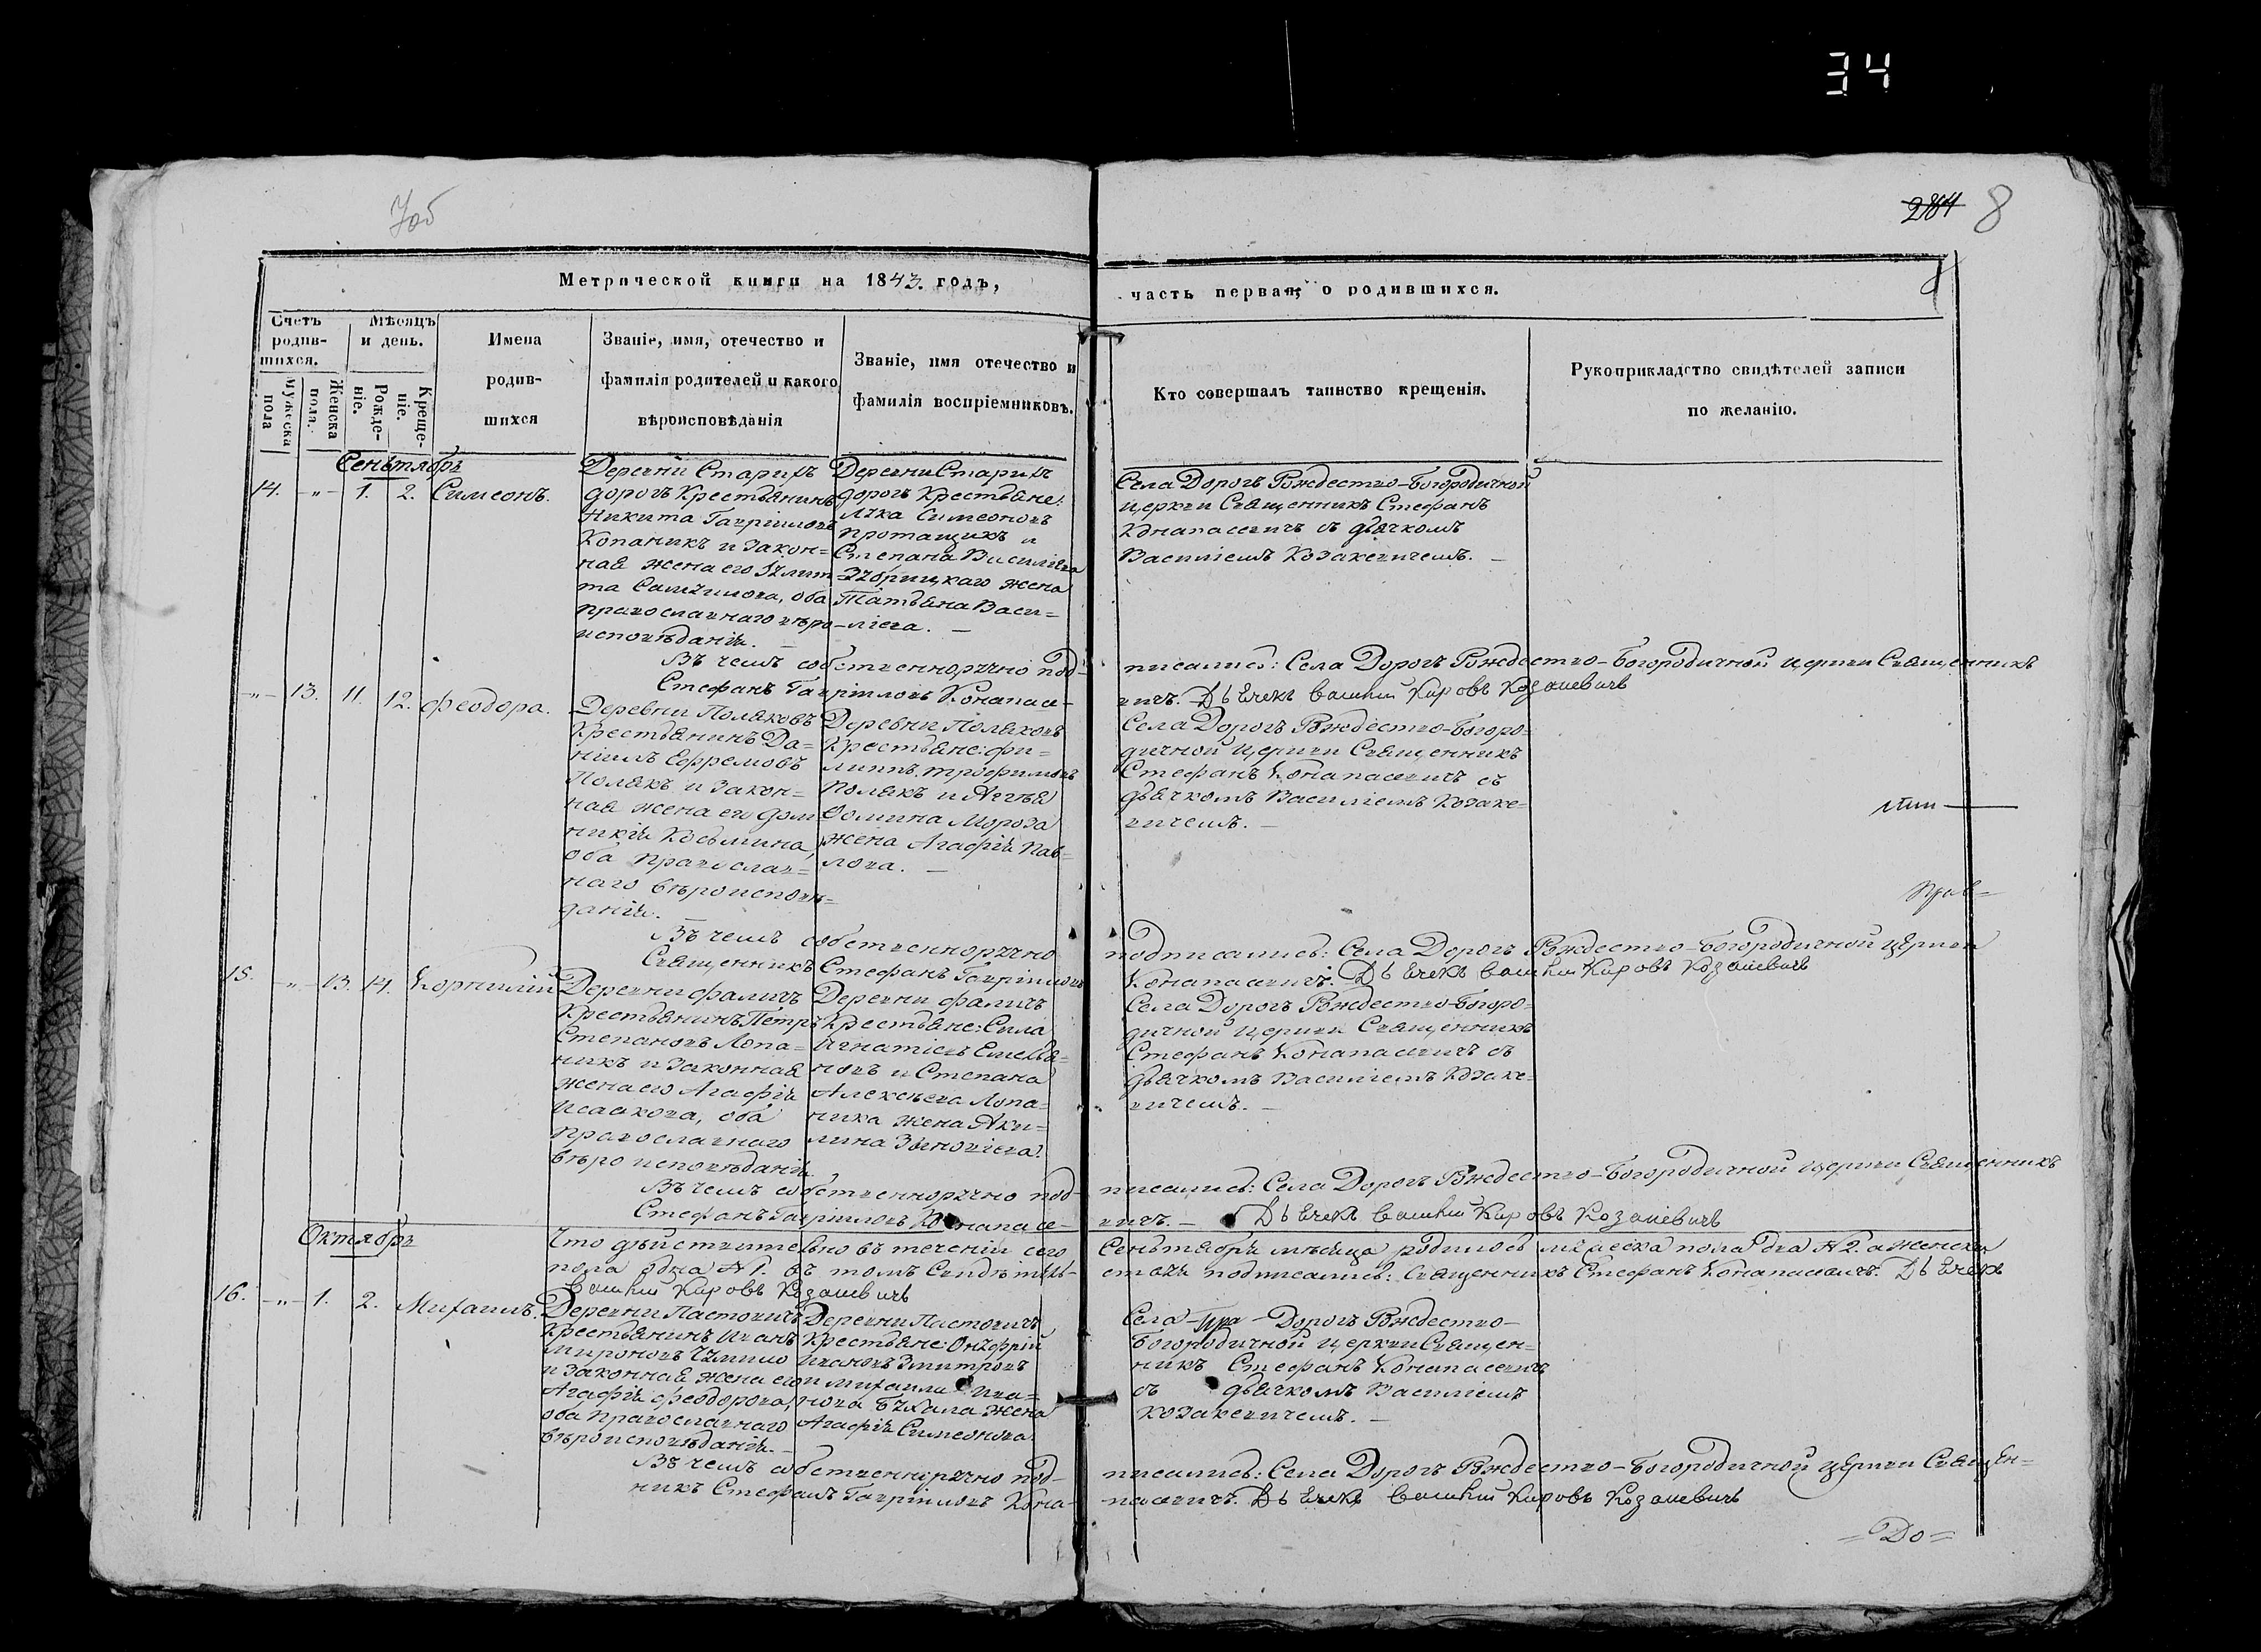 34
7об
284 8
Метрической книги на 1843. годъ,
часть первая, о родившихся.
Счетъ родив-шихся.
Мужеска пола
Женска пола.
Мѣсяцъ и день.
Рожде-ніе.
Креще-ніе.
Имена
родив-
шихся
Званіе, имя, отечество и
фамилія родителей и какого
вѣроисповѣданія
Званіе, имя отечество и
фамилія воспріемниковъ.
Кто совершалъ таинство крещенія.
Рукоприкладство свидѣтелей записи
по желанію.
Сеньтябрь
14. -"- 1. 2. Симеонъ.
Деревни Старихъ
дорогъ Крестьянинъ
Никита Гавріиловъ
Копаникъ и закон=
ная жена его
та Самуилова, оба
православнаго вѣро-
исповѣданія.
Деревни Старихъ
дорогъ Крестьяне:
Лука Симеоновъ
Протащикъ и
Степана Василіева
жена
Татьяна Васи=
ліева. —
Села Дорогъ Рождество-Богородичной
церкви Священникъ Стефанъ
Конапасевичъ съ дьячкомъ
Василіемъ Козакевичемъ. —
Въ чемъ собственноручно под-
писались: Села Дорогъ Рождество-Богородичной церкви Священникъ
Стефанъ Гавріиловъ Конапасе-
вичъ. Дьячекъ Василій Кировъ Козакевичъ
-"- 13. 11. 12. Феодора.
Деревни Поляковъ
Крестьянинъ Да=
ніилъ Ефремовъ
Полякъ и закон=
ная жена его Дом
никія Козьмина,
оба православ=
наго вѣроисповѣ=
данія.
Деревни Поляковъ
Крестьяне: Фи=
липпъ Трофимовъ
Полякъ и Авгѣя
Фомина Мороза
жена Агафія Пав=
лова. —
Села Дорогъ Рождество-Богоро=
дичной церкви Священникъ
Стефанъ Конапасевичъ съ
дьячкомъ Василіемъ Козаке=
вичемъ. —
Въ чемъ собственноручно
подписались: Села Дорогъ Рождество-Богородичной церкви
Священникъ Стефанъ Гавріиловъ
Конапасевичъ. Дьячекъ Василій Кировъ Козакевичъ
15. -"- 13. 14. Корнилій
Деревни Фаличъ
Крестьянинъ Петръ
Степановъ Лопа=
никъ и законная
жена его Агафія
Исаакова, оба
православнаго
вѣроисповѣданія
Деревни Фаличъ
Крестьяне: Сила
Игнатіевъ Емелья=
новъ и Степана
Алексѣева Лопа=
ника жена Аки=
лина Зѣновіева.
Села Дорогъ Рождество-Богоро=
дичной церкви Священникъ
Стефанъ Конапасевичъ съ
дьячкомъ Василіемъ Козаке=
вичемъ. —
Въ чемъ собственноручно под-
писались: Села Дорогъ Рождество-Богородичной церкви Священникъ
Стефанъ Гавріиловъ Конапасе-
вичъ. — Дьячекъ Василій Кировъ Козакевичъ
Что дѣйствительно въ теченіи сего
Сеньтября мѣсяца родилось мужеска пола два № 2. а женска
пола одна № 1. въ томъ Свидѣтель-
ствуя подписались: Священникъ Стефанъ Конапасевичъ. Дьячекъ
Василій Кировъ Козакевичъ
Октябрь
16. -"- 1. 2. Михаилъ.
Деревни Пастовичъ
Крестьянинъ Иванъ
Мироновъ
и законная жена его
Агафія Феодорова,
оба православнаго
вѣроисповѣданія. —
Деревни Пастовичъ
Крестьяне: Онуфрій
Ивановъ Змитровъ
и Михаила Ива=
нова жена
Агафія Симеонова.
Села Дорогъ Рождество-
Богородичной церкви Священ=
никъ Стефанъ Конапасевичъ
съ дьячкомъ Василіемъ
Козакевичемъ. —
Въ чемъ собственноручно под-
писались: Села Дорогъ Рождество-Богородичной церкви Священ=
никъ Стефанъ Гавріиловъ Кона-
пасевичъ. Дьячекъ Василій Кировъ Козакевичъ
=До=